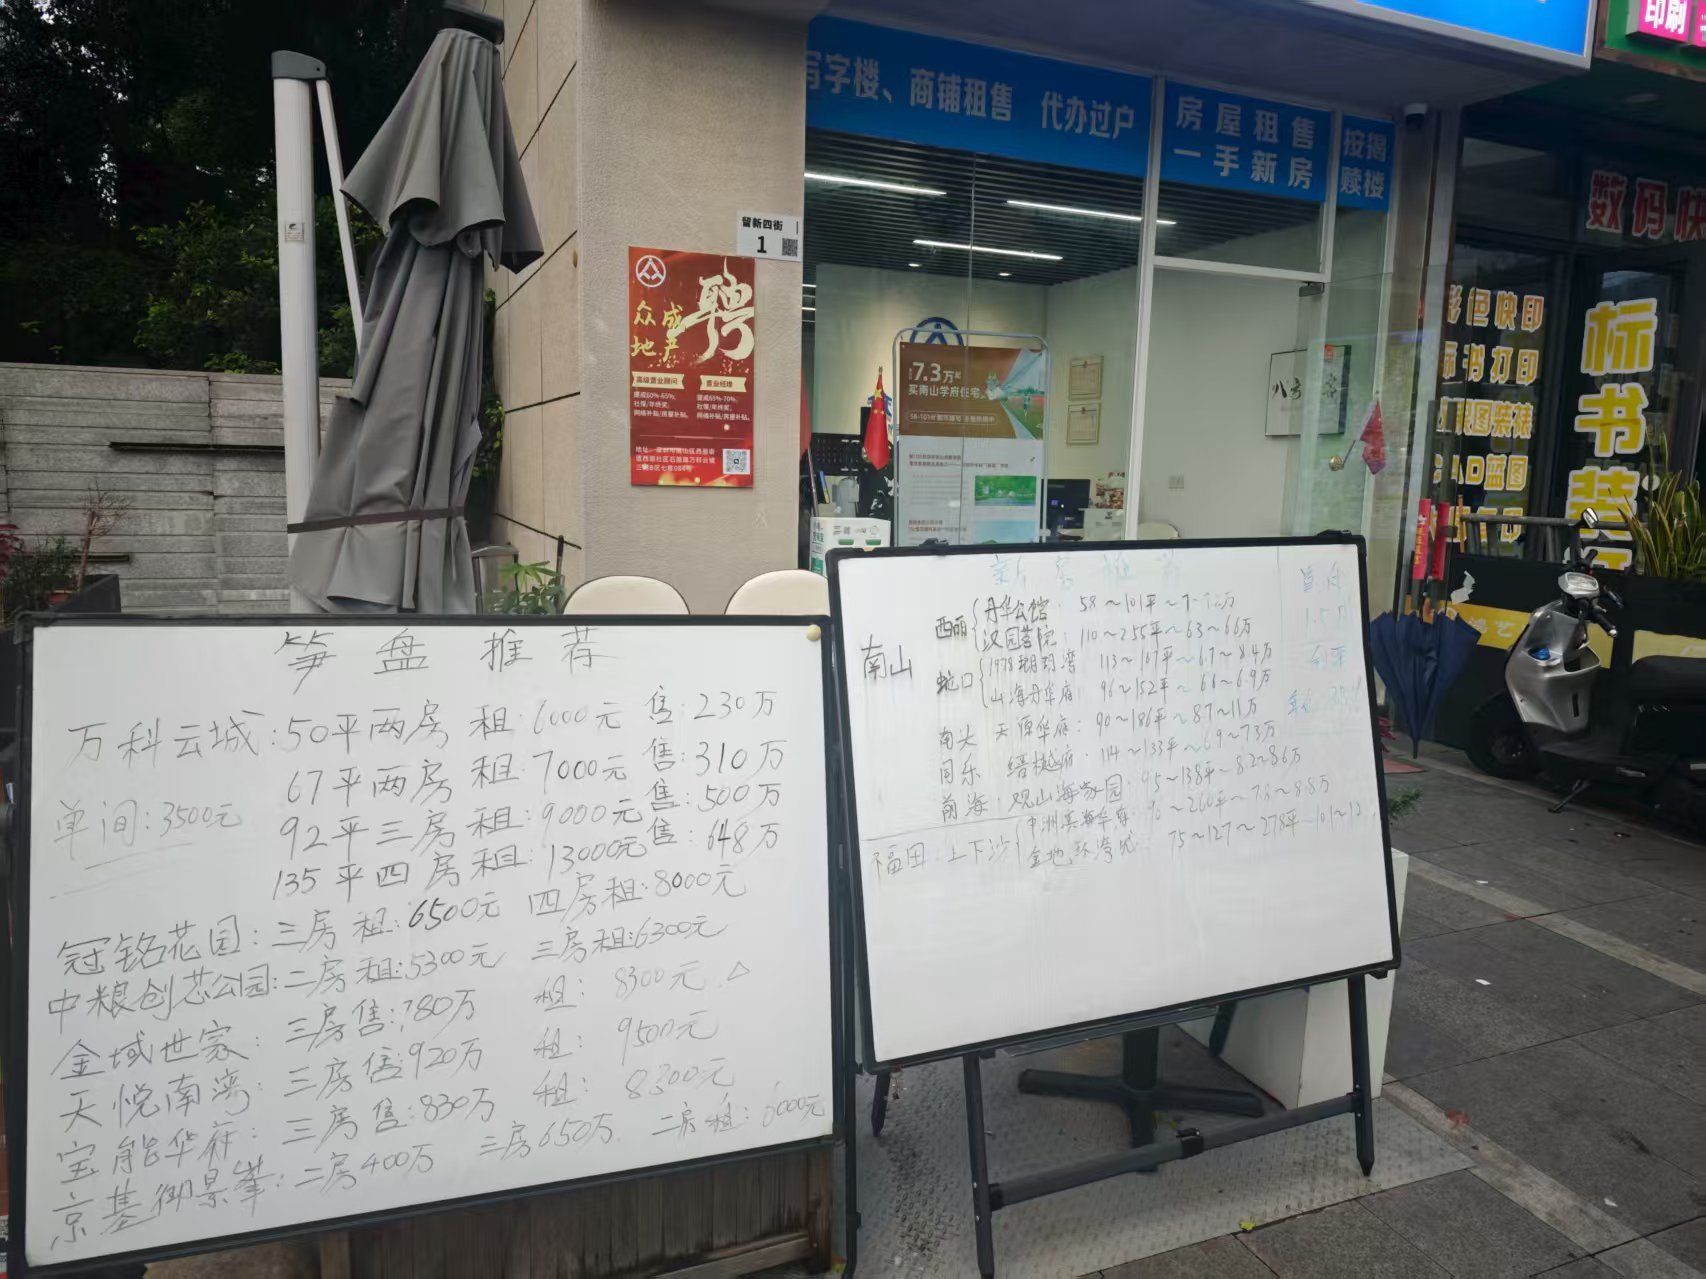 写字楼、商铺租售 代办过户
房屋租售
一手新房
按揭
赎楼
印刷
数码快
彩色快印
标书打印
装裱
蓝图
标书装
留新四街
1
聘
众成
地产
高级置业顾问
置业经理
提成60%-65%,
社保/年终奖,
网络补贴/房屋补贴。
提成65%-70%,
社保/年终奖,
网络补贴/房屋补贴。
7.3万起
买南山学府住宅
笋盘推荐
万科云城:50平两房 租:6000元 售:230万
67平两房 租:7000元 售:310万
单间:3500元
92平三房 租:9000元 售:500万
135平四房 租:13000元 售:648万
冠铭花园:三房租:6500元 四房租:8000元
中粮创芯公园:二房租:5300元 三房租:6300元
金域世家:三房售:780万 租:8300元
天悦南湾:三房售:920万 租:9500元
宝能华府:三房售:830万 租:8300元
京基御景峯:二房400万 三房650万 二房租:6000元
南山
西丽
丹华公馆:58~101平~7
汉园茗院:110~255平~63~66万
蛇口
113~167平~6.7~8.4万
山海丹华府:96~152平~66~6.9万
南头 天源华府:90~186平~87~11万
同乐 缙樾府:114~133平~69~73万
前海:观山海家园:95~138平~8.2~86万
中洲滨海华府:90~260平~7.8~8.8万
福田:上下沙
75~127~278平